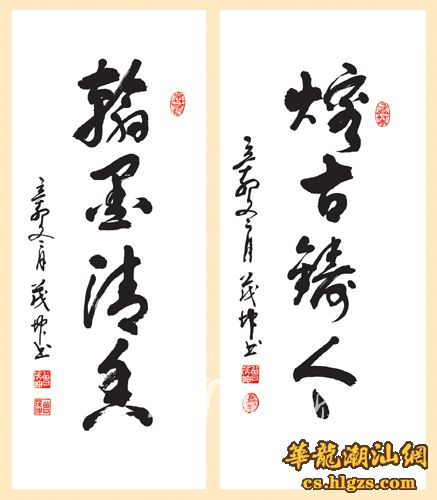 熔古鑄今
辛卯 二月 茂坤书
翰墨清香
辛卯 月 茂坤书
華龍潮汕網
cs.hlgzs.com